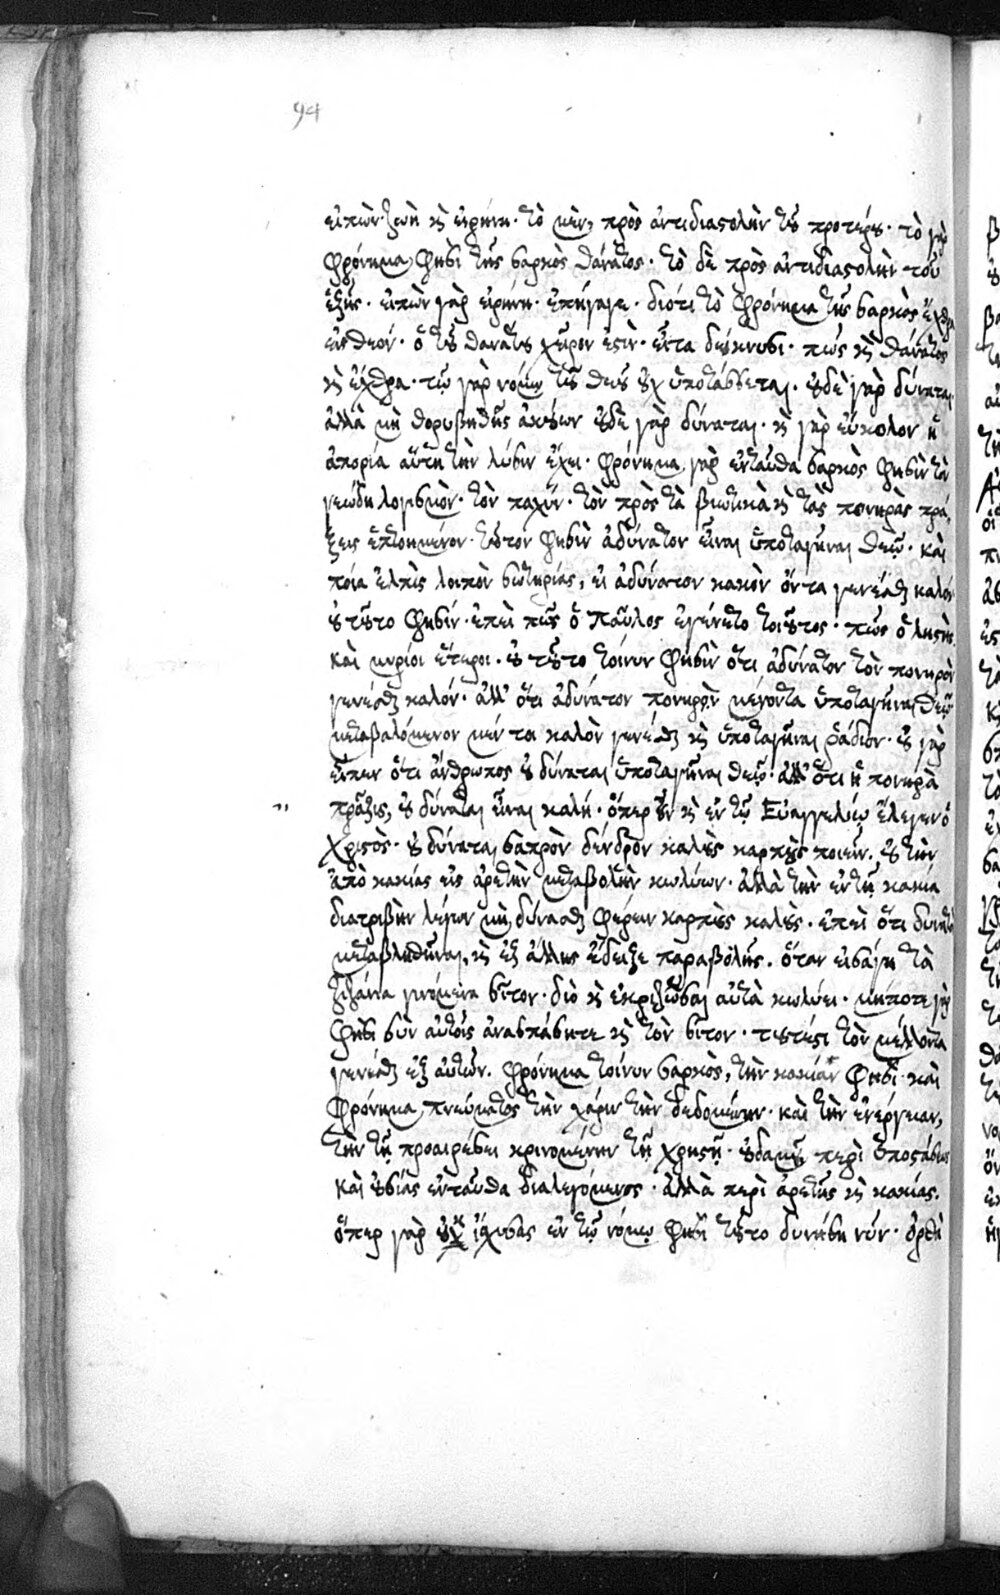 94
εἰπὼν ζωὴ κὶ εἰρήνη· τὸ μὲν, πρὸς ἀντιδιαστολὴν τοῦ προτέρου· τὸ γὰρ
φρόνημα φησὶ τῆς σαρκὸς θάνατος· τὸ δὲ πρὸς ἀντιδιαστολὴν τοῦ
ἑξῆς· εἰπὼν γὰρ εἰρήνη· ἐπήγαγε· διότι τὸ φρόνημα τῆς σαρκὸς ἔχθρα
εἰς θεόν· ὃ τοῦ θανάτου χεῖρον ἐστὶν· εἶτα δείκνυσι· πῶς κὶ θάνατος
κὶ ἔχθρα· τῷ γὰρ νόμῳ τοῦ θεοῦ οὐχ ὑποτάσσεται· οὐδὲ γὰρ δύναται·
ἀλλὰ μὴ θορυβηθῆς ἀκούων οὐδὲ γὰρ δύναται· κὶ γὰρ εὔκολον ἡ
ἀπορία αὕτη τὴν λύσιν ἔχει· φρόνημα γὰρ ἐνταῦθα σαρκὸς φησὶν τὸν
γεώδη λογισμὸν· τὸν παχύν· τὸν πρὸς τὰ βιωτικὰ κὶ τὰς πονηρὰς πρά
ξεις ἐπτοημένον· τοῦτον φησὶν ἀδύνατον εἶναι ὑποταγῆναι θεῷ· καὶ
ποία ἐλπὶς λοιπὸν σωτηρίας, εἰ ἀδύνατον κακὸν ὄντα γενέσθαι καλόν
οὐ τοῦτο φησίν· ἐπεὶ πῶς ὁ Παῦλος ἐγένετο τοιοῦτος· πῶς ὁ ληστὴς
καὶ μυρίοι ἕτεροι· οὐ τοῦτο τοίνυν φησὶν ὅτι ἀδύνατον τὸν πονηρὸν
γενέσθαι καλόν· ἀλλ' ὅτι ἀδύνατον πονηρὸν μένοντα ὑποταγῆναι θεῷ
μεταβαλόμενον μέν τοι καλὸν γενέσθαι κὶ ὑποταγῆναι ῥάδιον· οὐ γὰρ
εἶπεν ὅτι ἄνθρωπος οὐ δύναται ὑποταγῆναι θεῷ· ἀλλ' ὅτι ἡ πονηρὰ
πρᾶξις, οὐ δύναται εἶναι καλή· ὅπερ οὖν κὶ ἐν τῷ Εὐαγγελίῳ ἔλεγεν ὁ
Χριστὸς· οὐ δύναται σαπρὸν δένδρον καλοὺς καρποὺς ποιεῖν. οὐ τὴν
ἀπὸ κακίας εἰς ἀρετὴν μεταβολὴν κωλύων· ἀλλὰ τὴν ἐν τῇ κακίᾳ
διατριβὴν λέγων μὴ δύνασθαι φέρειν καρποὺς καλοὺς· ἐπεὶ ὅτι δυνατὸν
μεταβληθῆναι, κὶ ἐξ ἄλλης ἔδειξε παραβολῆς. ὅταν εἰσάγῃ τὰ
ζιζάνια γινόμενα σῖτον· διὸ κὶ ἐκριζῶσαι αὐτὰ κωλύει· μήποτε γὰρ
φησὶ σὺν αὐτοῖς ἀνασπάσητε κὶ τὸν σῖτον· τουτέστι τὸν μέλλοντα
γενέσθαι ἐξ αὐτῶν. φρόνημα τοίνυν σαρκὸς, τὴν κακίαν φησὶ· καὶ
φρόνημα πνεύματος τὴν χάριν τὴν δεδομένην· καὶ τὴν ἐνέργειαν,
τὴν τῇ προαιρέσει κρινομένην τῇ χρηστῇ· οὐδαμοῦ περὶ ὑποστάσεως
καὶ οὐσίας ἐνταῦθα διαλεγόμενος· ἀλλὰ περὶ ἀρετῆς κὶ κακίας.
ὅπερ γὰρ οὐκ ἴσχυσας ἐν τῷ νόμῳ φησὶ τοῦτο δυνήσῃ νῦν· ὀρθὰ